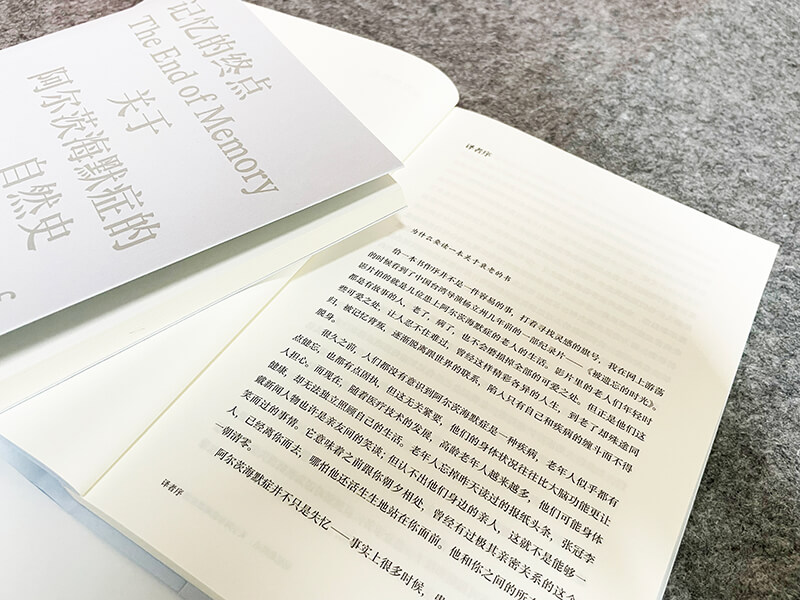 记忆的终点
The End of Memory
关于
阿尔茨海默症的
自然史
译者序
为什么要读一本关于衰老的书
给一本书作序并不是一件容易的事，打着寻找灵感的旗号，我在网上游荡
的时候看到了中国台湾导演杨立州几年前的一部纪录片——《被遗忘的时光》。
影片拍的就是几位患上阿尔茨海默症的老人的生活。影片里的老人们年轻时
都是有故事的人，老了，病了，也不会磨损掉全部的可爱之处。但正是他们这
些可爱之处，让人忍不住难过，曾经这样精彩各异的人生，到老了却殊途同
归，被记忆背叛，逐渐脱离跟世界的联系，陷入只有自己和疾病的缠斗而不得
脱身。
很久之前，人们都没有意识到阿尔茨海默症是一种疾病，老年人似乎都有
点健忘，也都有点固执，但这无关紧要，他们的身体状况往往比大脑功能更让
人担心。而现在，随着医疗技术的发展，高龄老年人越来越多，他们可能身体
健康，却无法独立照顾自己的生活。老年人忘掉昨天读过的报纸头条，张冠李
戴新闻人物也许是亲友间的笑谈；但认不出他们身边的亲人，这就不是能够一
笑而过的事情。它意味着之前跟你朝夕相处，曾经有过极其亲密关系的这个
人，已经离你而去，哪怕他还活生生地站在你面前。他和你之间的所
一朝清零。
阿尔茨海默症并不只是失忆——事实上很多时候，
译者序